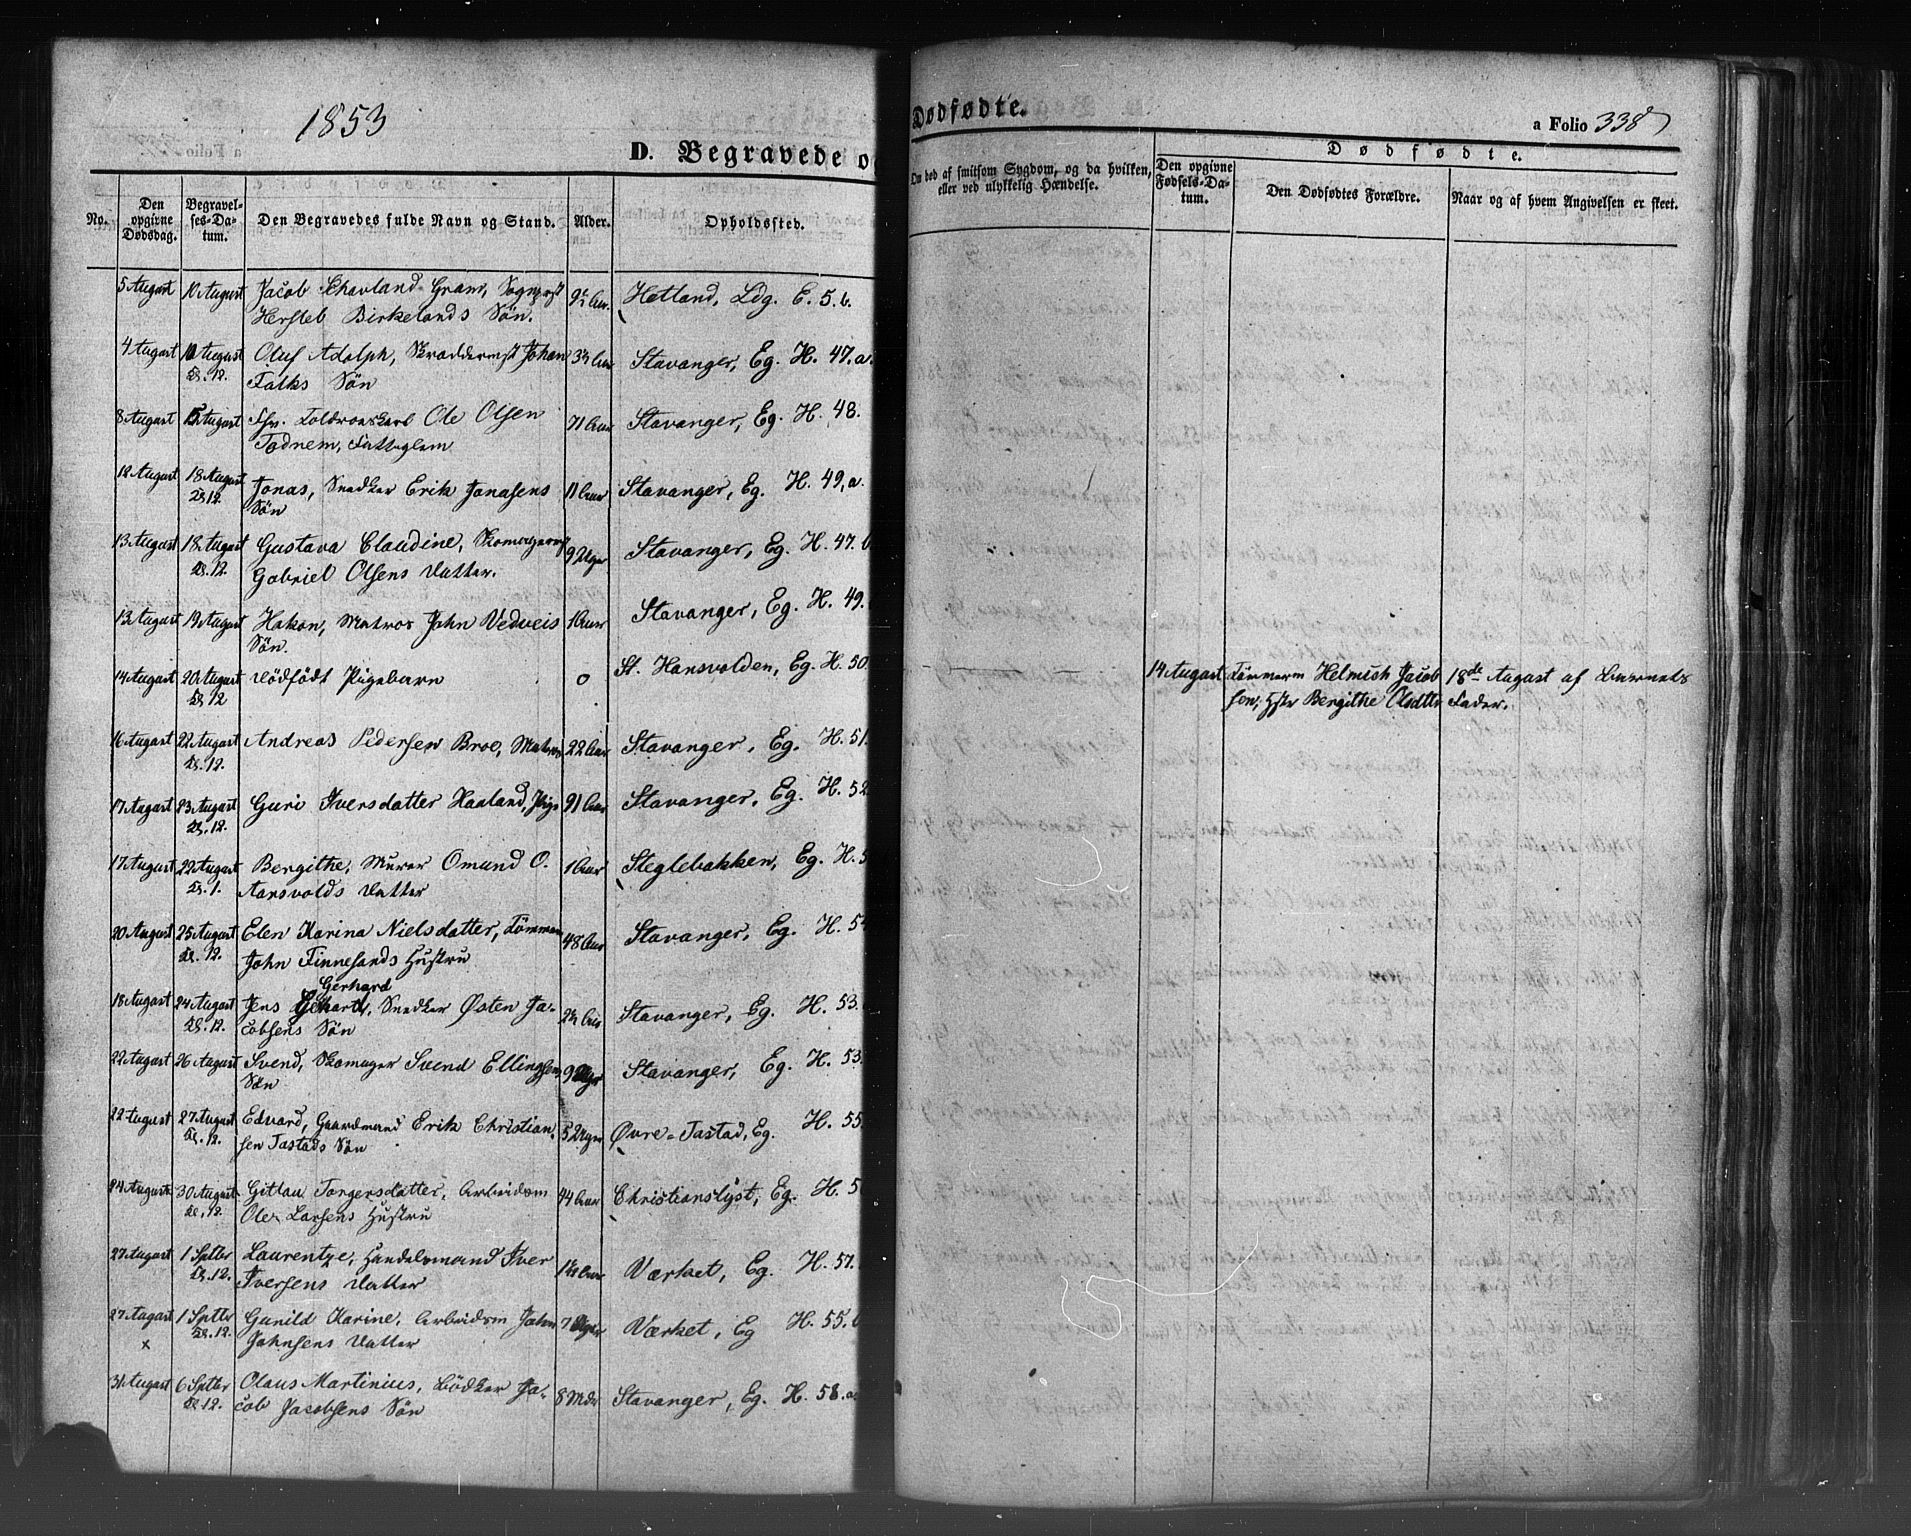 1853
D. Begravede o
Dødfødte.
a Folio 338
No.
Den opgivne Dødsdag.
Begravel-ses-Da-tum.
Den Begravedes fulde Navn og Stand.
Alder.
Opholdssted.
Om død af smitsom Sygdom, og da hvilken, eller ved ulykkelig Hændelse.
Dødfødte.
Den opgivne Fødsels-Da-tum.
Den Dødfødtes Forældre.
Naar og af hvem Angivelsen er skeet.
5 August 10 August Jacob Schavland Gram, Sogneprst Hersleb Birkelands Søn. Hetland, Ldg. E. 5. b.
4 August August Kl. 12. Oluf Adolph, Skræddermst Johan Falks Søn Stavanger, Eg. H. 47. a.
8 August 15 August Ole Olsen Todnem, Fattiglem 71 Aar Stavanger, Eg. H. 48.
12 August 18 August Kl 12. Jonas, Snedker Erik Jonasens Søn Aar Stavanger, Eg. H. 49, a.
13 August 18 August Kl. 12. Gustava Claudine, Skomagermst Gabriel Olsens Datter. 9 Uger Stavanger, Eg. H. 47. b
13 August 19 August Hakon, Matros John Vedveis Søn. 1 Aar Stavanger, Eg. H. 49.
14 August 20 August Kl 12 Dödfödt Pigebarn 0 St. Hansvolden, Eg. H. 50. 14 August Tömmerm Helmich Jacobsen, Hstr Bergithe Olsdttr 18de August af Barnets Fader.
16 August 22 August Kl. 12. Andreas Pedersen Broe, Matros 22 Aar Stavanger, Eg. H. 51.
17 August 23 August Kl. 12. Guri Iversdatter Haaland, Pige 91 Aar Stavanger, Eg. H. 52
17 August 22 August Kl. 1. Bergithe, Murer Omund O. Aarsvolds Datter 1 Aar Steglebakken, Eg. H. 5
20 August 25 August Kl. 12. Elen Karina Nielsdatter, Tömmerm John Finnesands Hustru 48 Aar Stavanger, Eg. H. 54
18 August 24 August Kl. 12. Jens Gerhard, Snedker Østen Ja-cobsens Søn Aar Stavanger, Eg. H. 53.
22 August 26 August Svend, Skomager Svend Ellingsens Søn 9 Stavanger, Eg. H. 53.
22 August 27 August Kl. 12. Edvard, Gaardmand Erik Christian-sen Tastads Søn 5 Uger Øvre-Tastad, Eg. H. 55
24 August 30 August Kl. 12. Gitlau Torgersdatter, Arbeidsm Ole Larsens Hustru 44 Aar Christianslyst, Eg. H. 5
27 August 1 Sptbr Kl. 12. Laurentze, Handelsmand Iver Iversens Datter Aar Værket, Eg. H. 57.
27 August x 1 Sptbr Kl. 12. Gunild Karine, Arbeidsm John Johnsens Datter 7 Værket, Eg H. 55. b
31 August 6 Sptbr Kl 12. Olaus Martinius, Bödker Ja-cob Jacobsens Søn 8 Mdr Stavanger, Eg. H. 58. a.